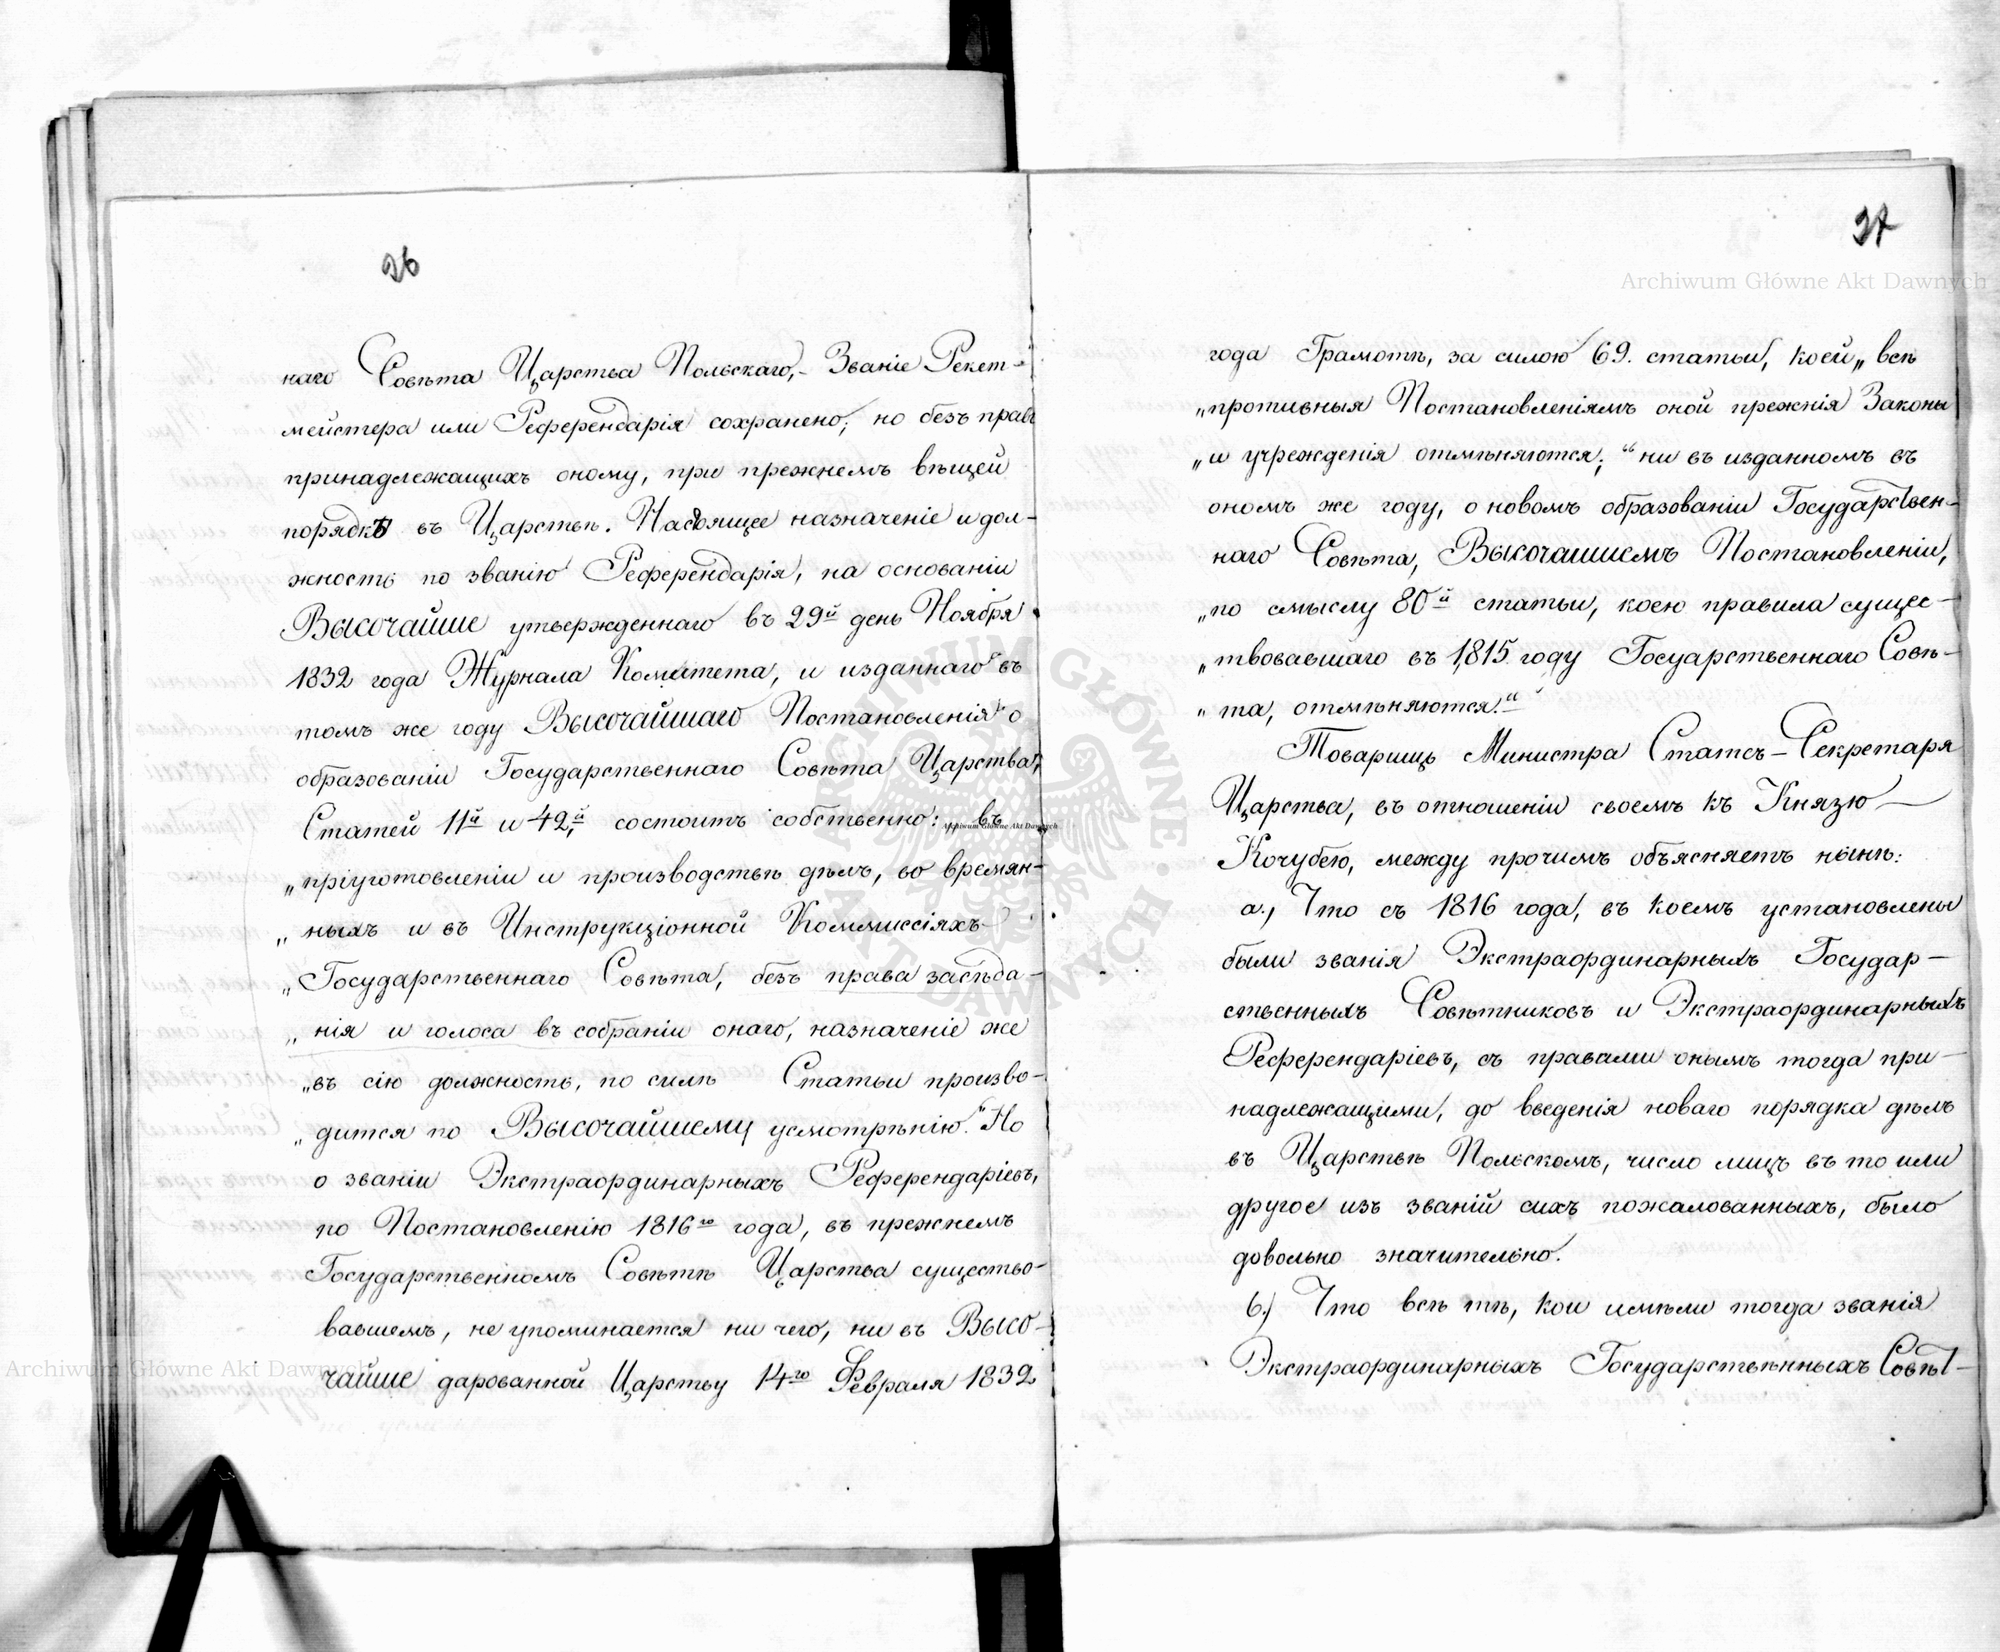 26
наго Совѣта Царства Польскаго,- Званіе Рекет-
мейстера или Референдарія сохранено; но безъ правъ
принадлежащихъ оному, при прежнемъ вѣщей
порядкѣ въ Царствѣ. Настоящее назначеніе и дол-
жность по званію Референдарія, на основаніи
Высочайше утвержденнаго въ 29й день Ноября
1832 года Журнала Комитета, и изданнаго въ
томъ же году Высочайшаго Постановленія о
образованіи Государственнаго Совѣта Царства,
Статей 11й и 42,й состоитъ собственно: въ
„пріуготовленіи и производствѣ дѣлъ, во времян-
„ныхъ и въ Инструкціонной Коммиссіяхъ
„Государственнаго Совѣта, безъ права засѣда-
„нія и голоса въ собраніи онаго, назначеніе же
„въ сію должность, по силѣ Статьи произво-
„дится по Высочайшему усмотрѣнію." Но
о званіи Экстраординарныхъ Референдаріевъ,
по Постановленію 1816го года, въ прежнемъ
Государственномъ Совѣтѣ Царства существо-
вавшемъ, не упоминается ни чего, ни въ Высо-
чайше дарованной Царству 14го Февраля 1832
27
года Грамотѣ, за силою 69. статьи, коей „всѣ
„противныя Постановленіямъ оной прежнія Законы
„и учрежденія отмѣняются; “ ни въ изданномъ въ
ономъ же году, о новомъ образованіи Государствен-
наго Совѣта, Высочайшемъ Постановленіи,
„по смыслу 80й статьи, коею правила сущес-
„твовавшаго въ 1815 году Государственнаго Совѣ-
„та, отмѣняются.“
Товарищъ Министра Статсъ-Секретаря
Царства, въ отношеніи своемъ къ Князю
Кочубею, между прочимъ объясняетъ нынѣ:
а., Что съ 1816 года, въ коемъ установлены
были званія Экстраординарныхъ Государ-
ственныхъ Совѣтниковъ и Экстраординарныхъ
Референдаріевъ, съ правами онымъ тогда при-
надлежащими, до введенія новаго порядка дѣлъ
въ Царствѣ Польскомъ, число лицъ въ то или
другое изъ званій сихъ пожалованныхъ, было
довольно значительно.
б.) Что всѣ тѣ, кои имѣли тогда званія
Экстраординарныхъ Государствѣнныхъ Совѣт-
Archiwum Główne Akt Dawnych
Archiwum Główne Akt Dawnych
Archiwum Główne Akt Dawnych
ARCHIWUM GŁÓWNE AKT DAWNYCH